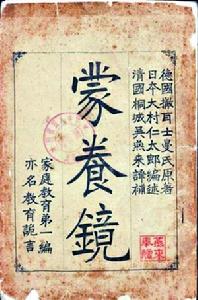 德國撒耳士曼氏原著
日本大村仁太郎編述
清國桐城吳燕來譯補
蒙養鏡
家庭教育第一編
亦名教育詭言